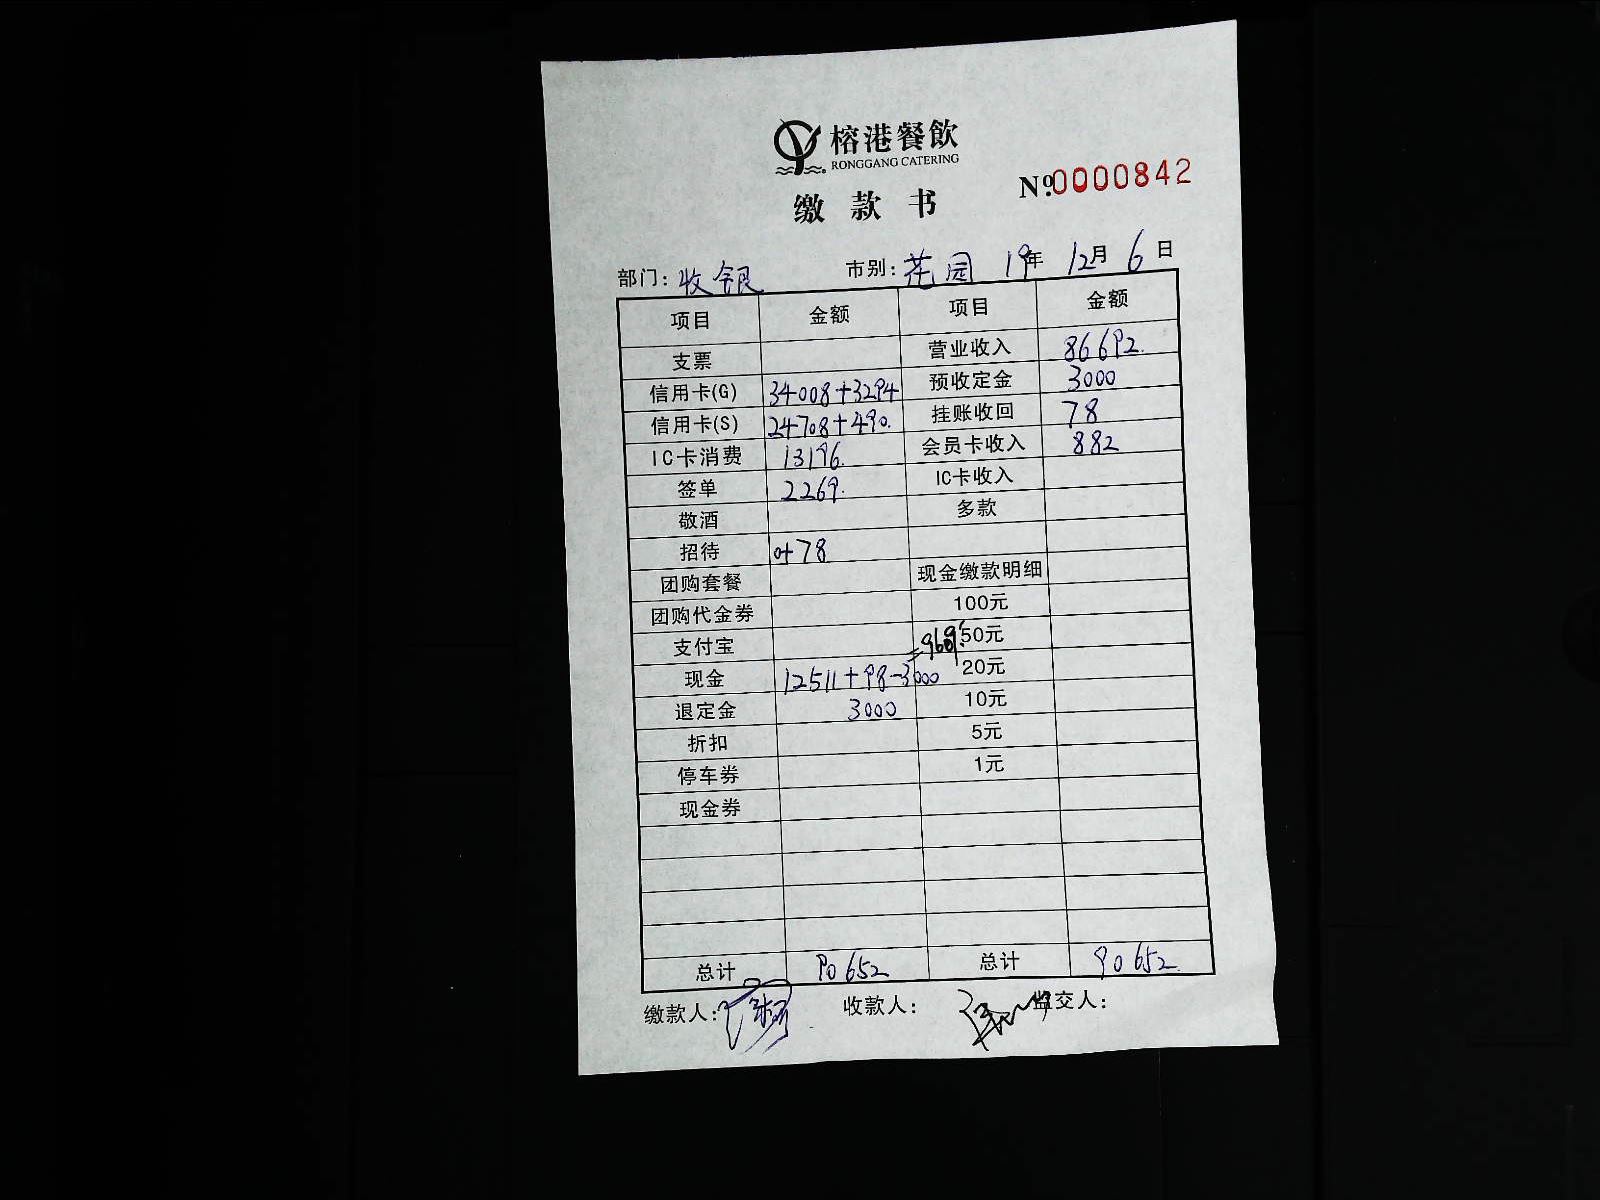 榕港餐飲
RONGGANG CATERING
缴款书
№0000842
部门：收银 市别：花园 19年 12月 6日
项目 金额 项目 金额
支票 营业收入 86692.
信用卡(G) 34008+3294 预收定金 3000
信用卡(S) 24708+490. 挂账收回 78
IC卡消费 13196. 会员卡收入 882
签单 2269. IC卡收入
敬酒 多款
招待 0+78
团购套餐 现金缴款明细
团购代金券 100元
支付宝 50元
=9609.
现金 12511+98-3000 20元
退定金 3000 10元
折扣 5元
停车券 1元
现金券
总计 90652 总计 90652.
缴款人： 收款人： 监交人：